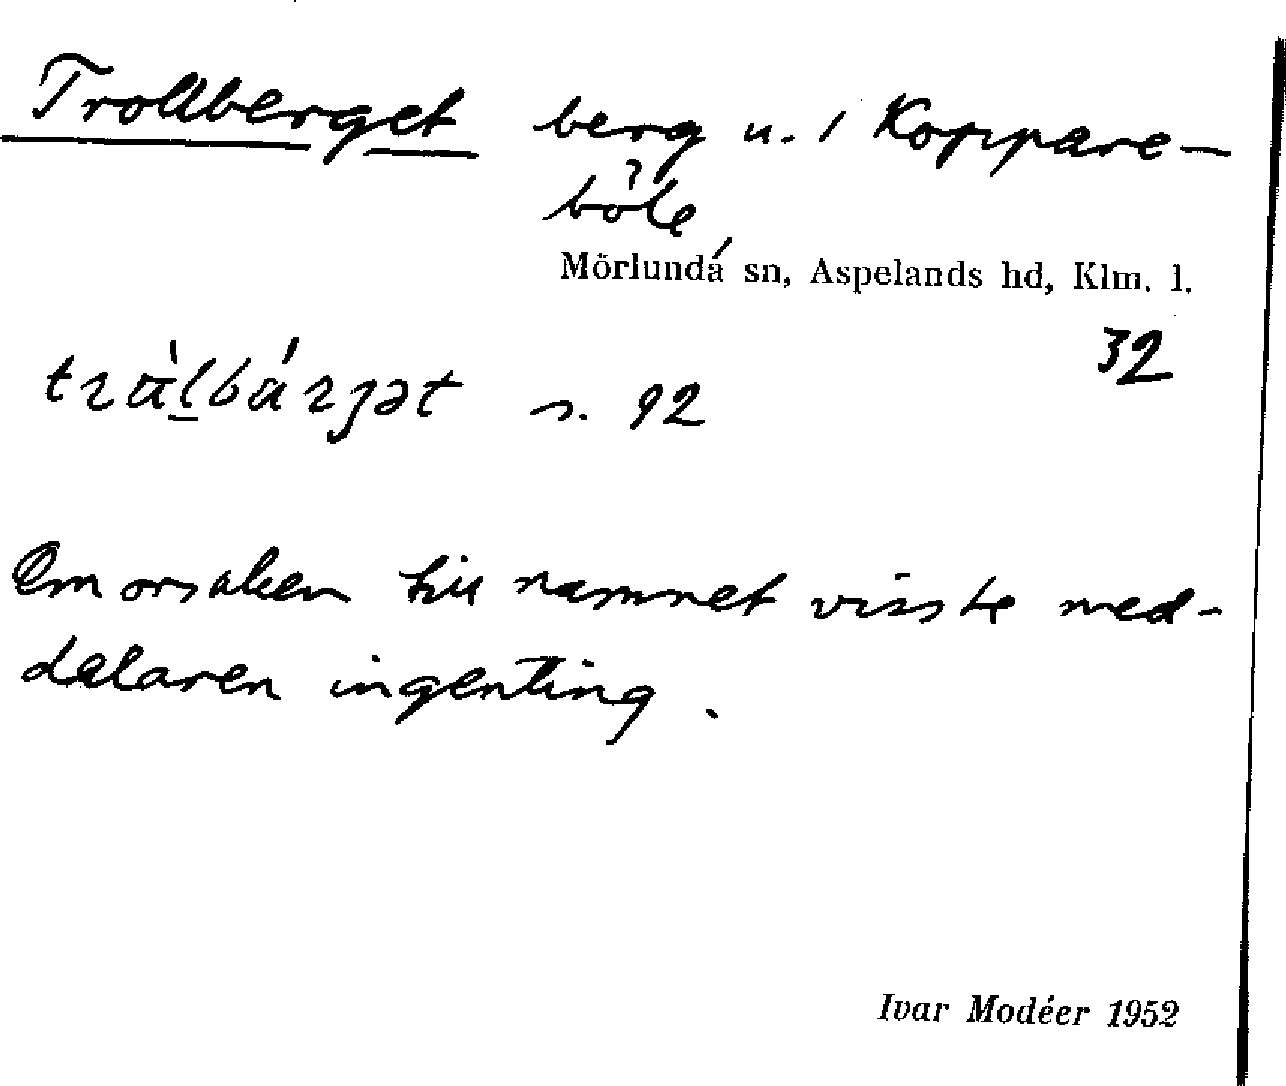 Trollberget berg u. / Koppare-
böle
Mörlundá sn, Aspelands hd, Klm. l.
32
s. 92
Om orsaken till namnet visste med-
delaren ingenting.
Ivar Modéer 1952